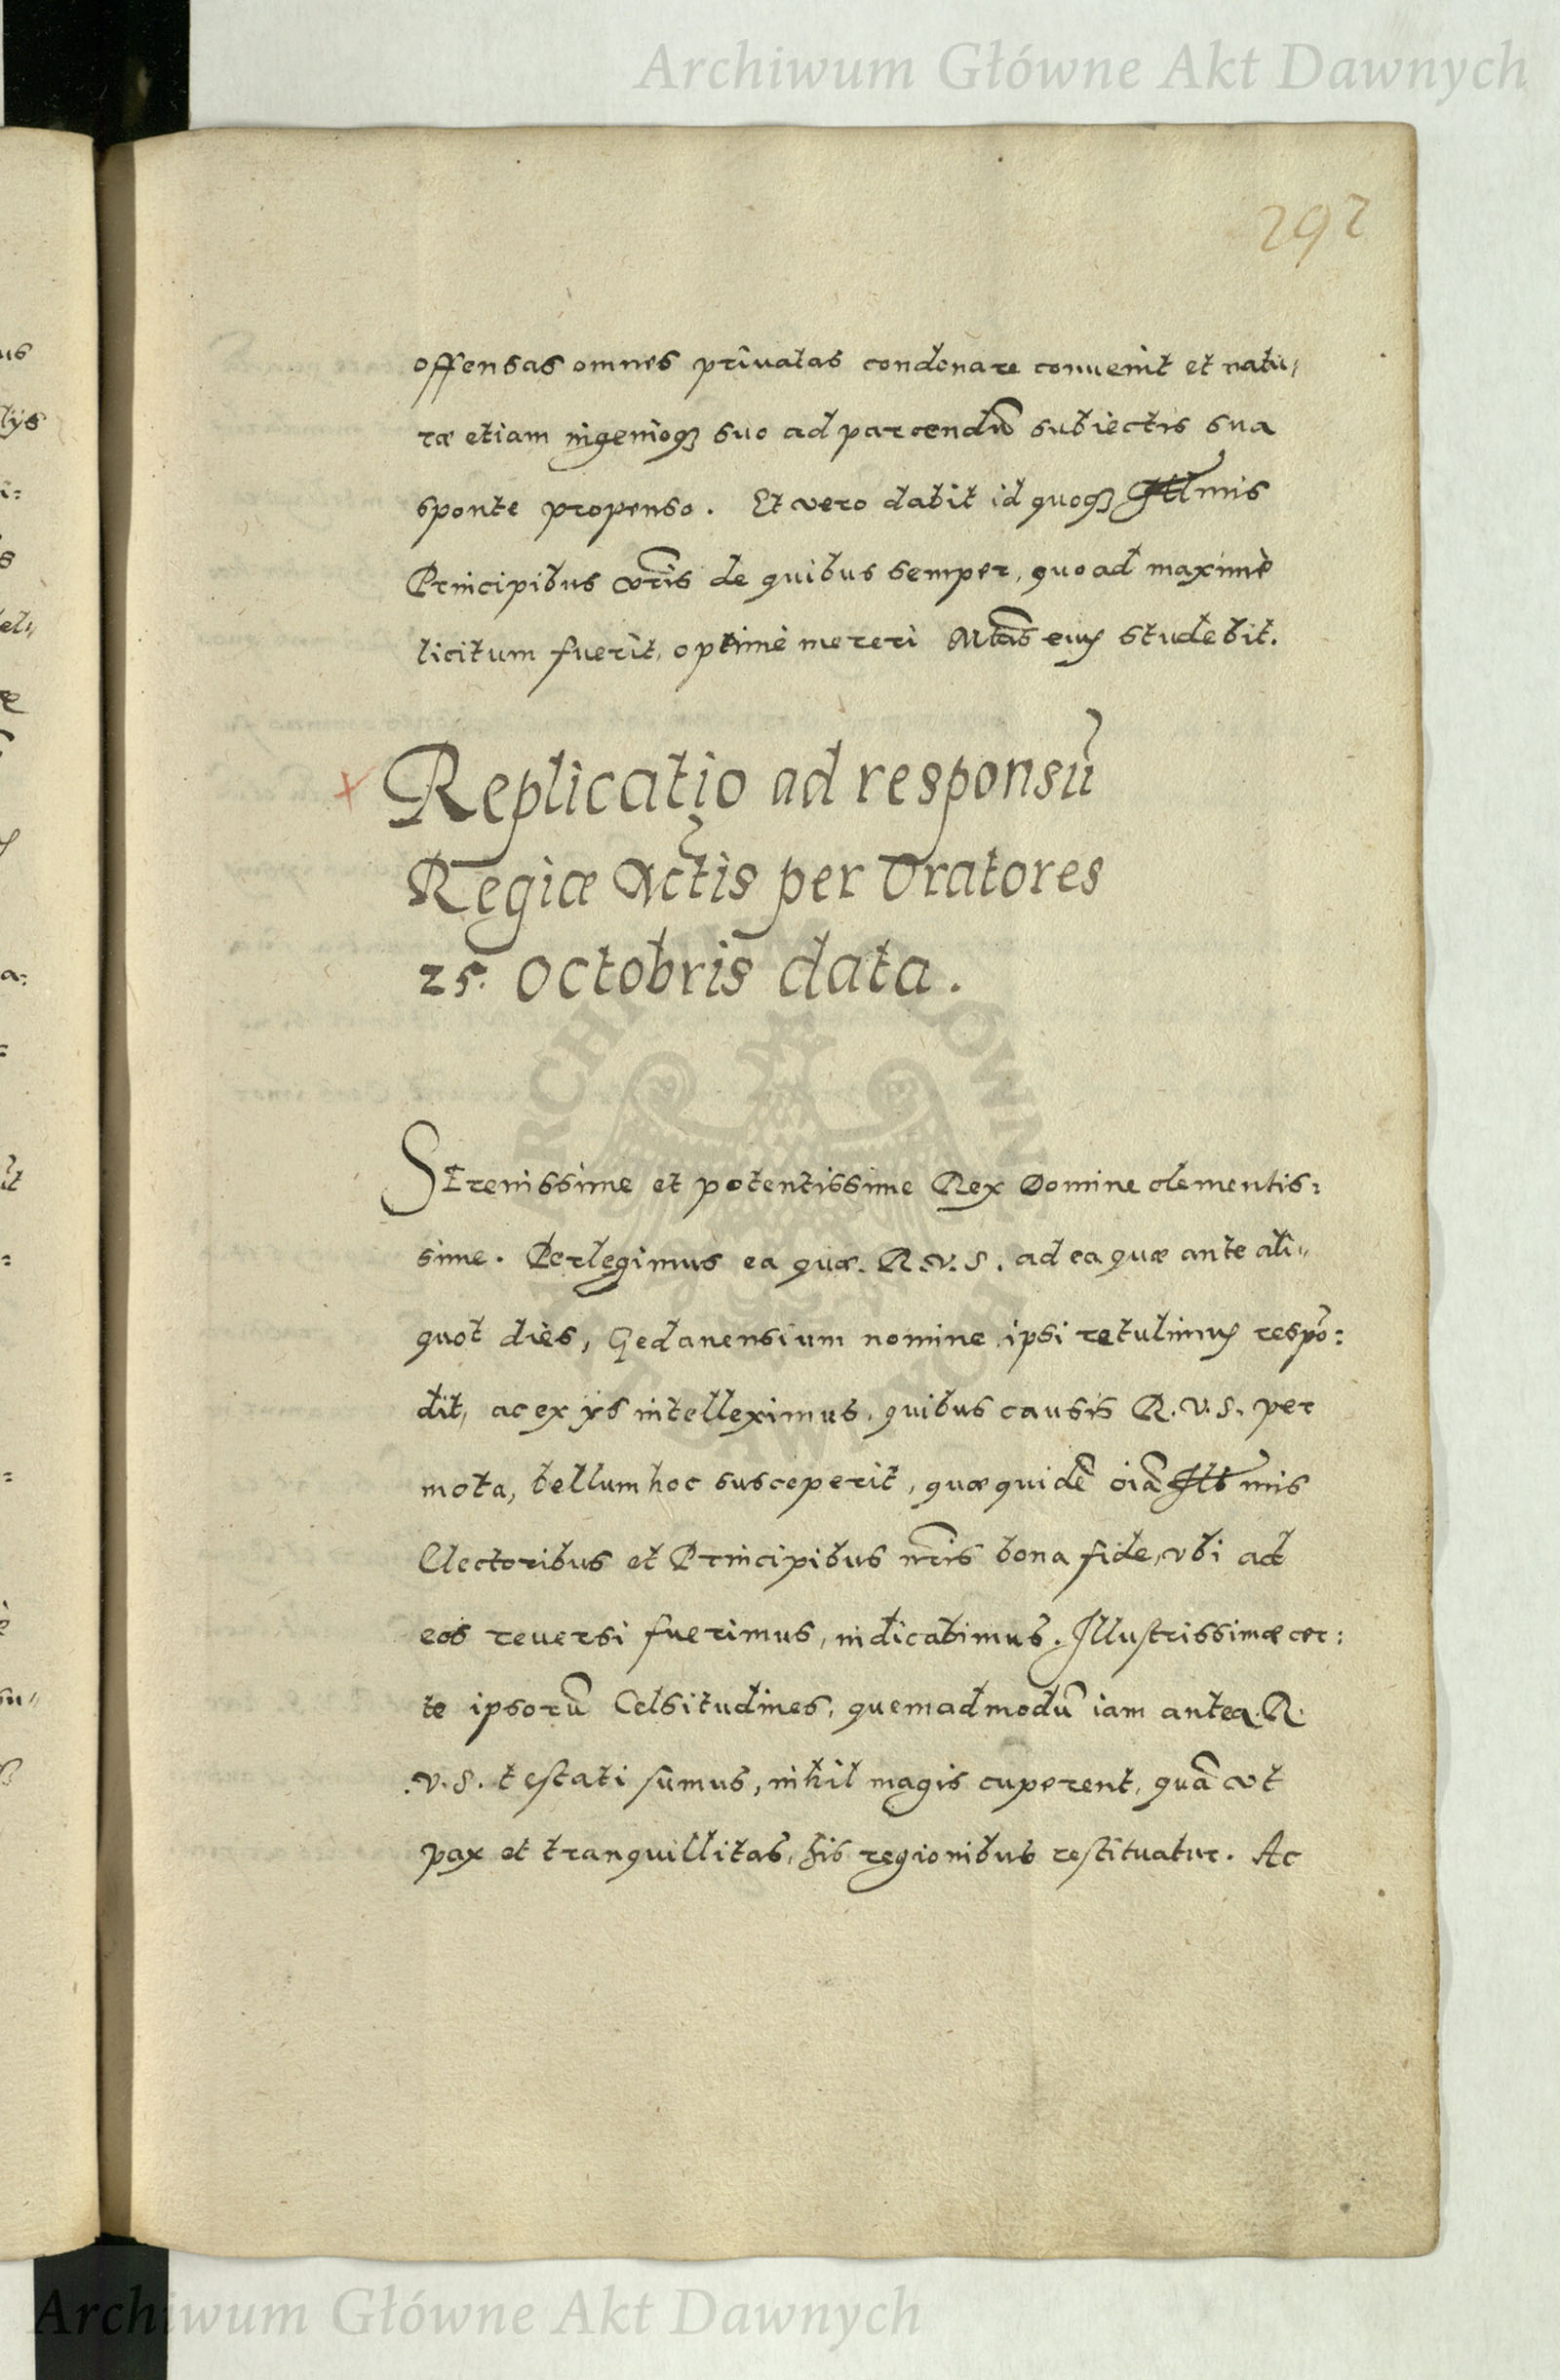 Archiwum Główne Akt Dawnych
292
offensas omnes priuatas condonare conuenit et natu,,
ræ etiam ingenioqꝫ suo ad parcendũ subiectis sua
sponte propenso. Et vero dabit id quoqꝫ Illmis
Principibus vr̃is de quibus semper, quoad maximè
licitum fuerit, optimè mereri Mtas̃ eius studebit.
Replicatio ad responsũ
Regiæ Mtis per Oratores
25. Octobris data.
Serenissime et potentissime Rex Domine clementis:
sime. Perlegimus ea quæ. R.V.S. ad ea quæ ante ali,,
quot dies, Gedanensium nomine ipsi retulimus respõ:
dit, ac ex ijs intelleximus, quibus causis R.V.S. per
mota, bellum hoc susceperit, quæ quidẽ oĩa Illmis
Electoribus et Principibus nr̃is bona fide, vbi ad
eos reuersi fuerimus, indicabimus. Illustrissimæ cer:
te ipsorũ Celsitudines, quemadmodũ iam antea R.
V.S. testati sumus, nihil magis cuperent, quã vt
pax et tranquillitas, his regionibus restituatur. Ac
Archiwum Główne Akt Dawnych